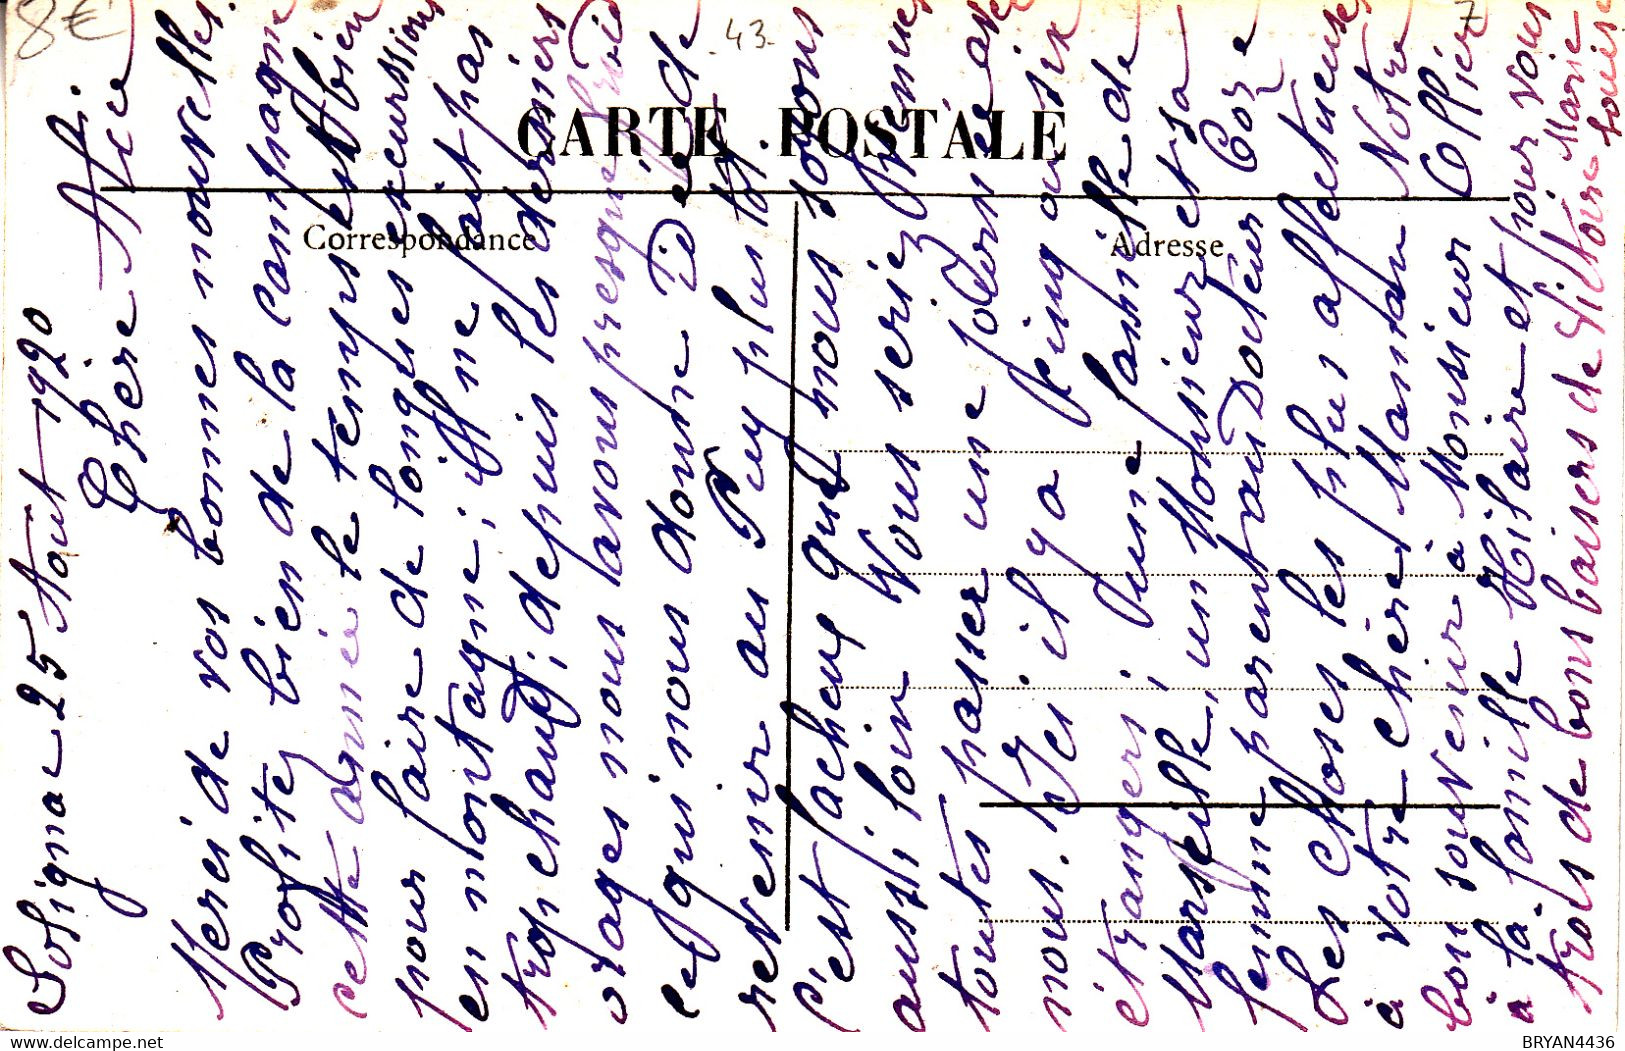 8€
43.
7
CARTE POSTALE
Correspondance
Adresse
Solignac 25 Aout 1920
Chère Alice
Merci de vos bonnes nouvelles.
Profitez bien de la campagne
cette année le temps est bien
pour faire de longues escurssions
en montagne; il ne fait pas
trop chaud; depuis les derniers
orages nous avons presque froid
ce qui nous donne l'idée de
revenir au Puy plus tôt.
C'est facheux que nous soyons
aussi loin Vous seriez venues
toutes passer une journée avec
nous. Ici il y a cinq ou six
étrangers; d'une famille de
Marseille, un Monsieur et sa
femme parent au Docteur Coze
Les choses les plus affectueuses
à votre chère Maman Notre
bon souvenir à Monsieur Ollier
à la famille Hilaire et pour vous
trois de bons baisers de Victoire Marie
Louise
hip.delcampe.net
BRYAN4436